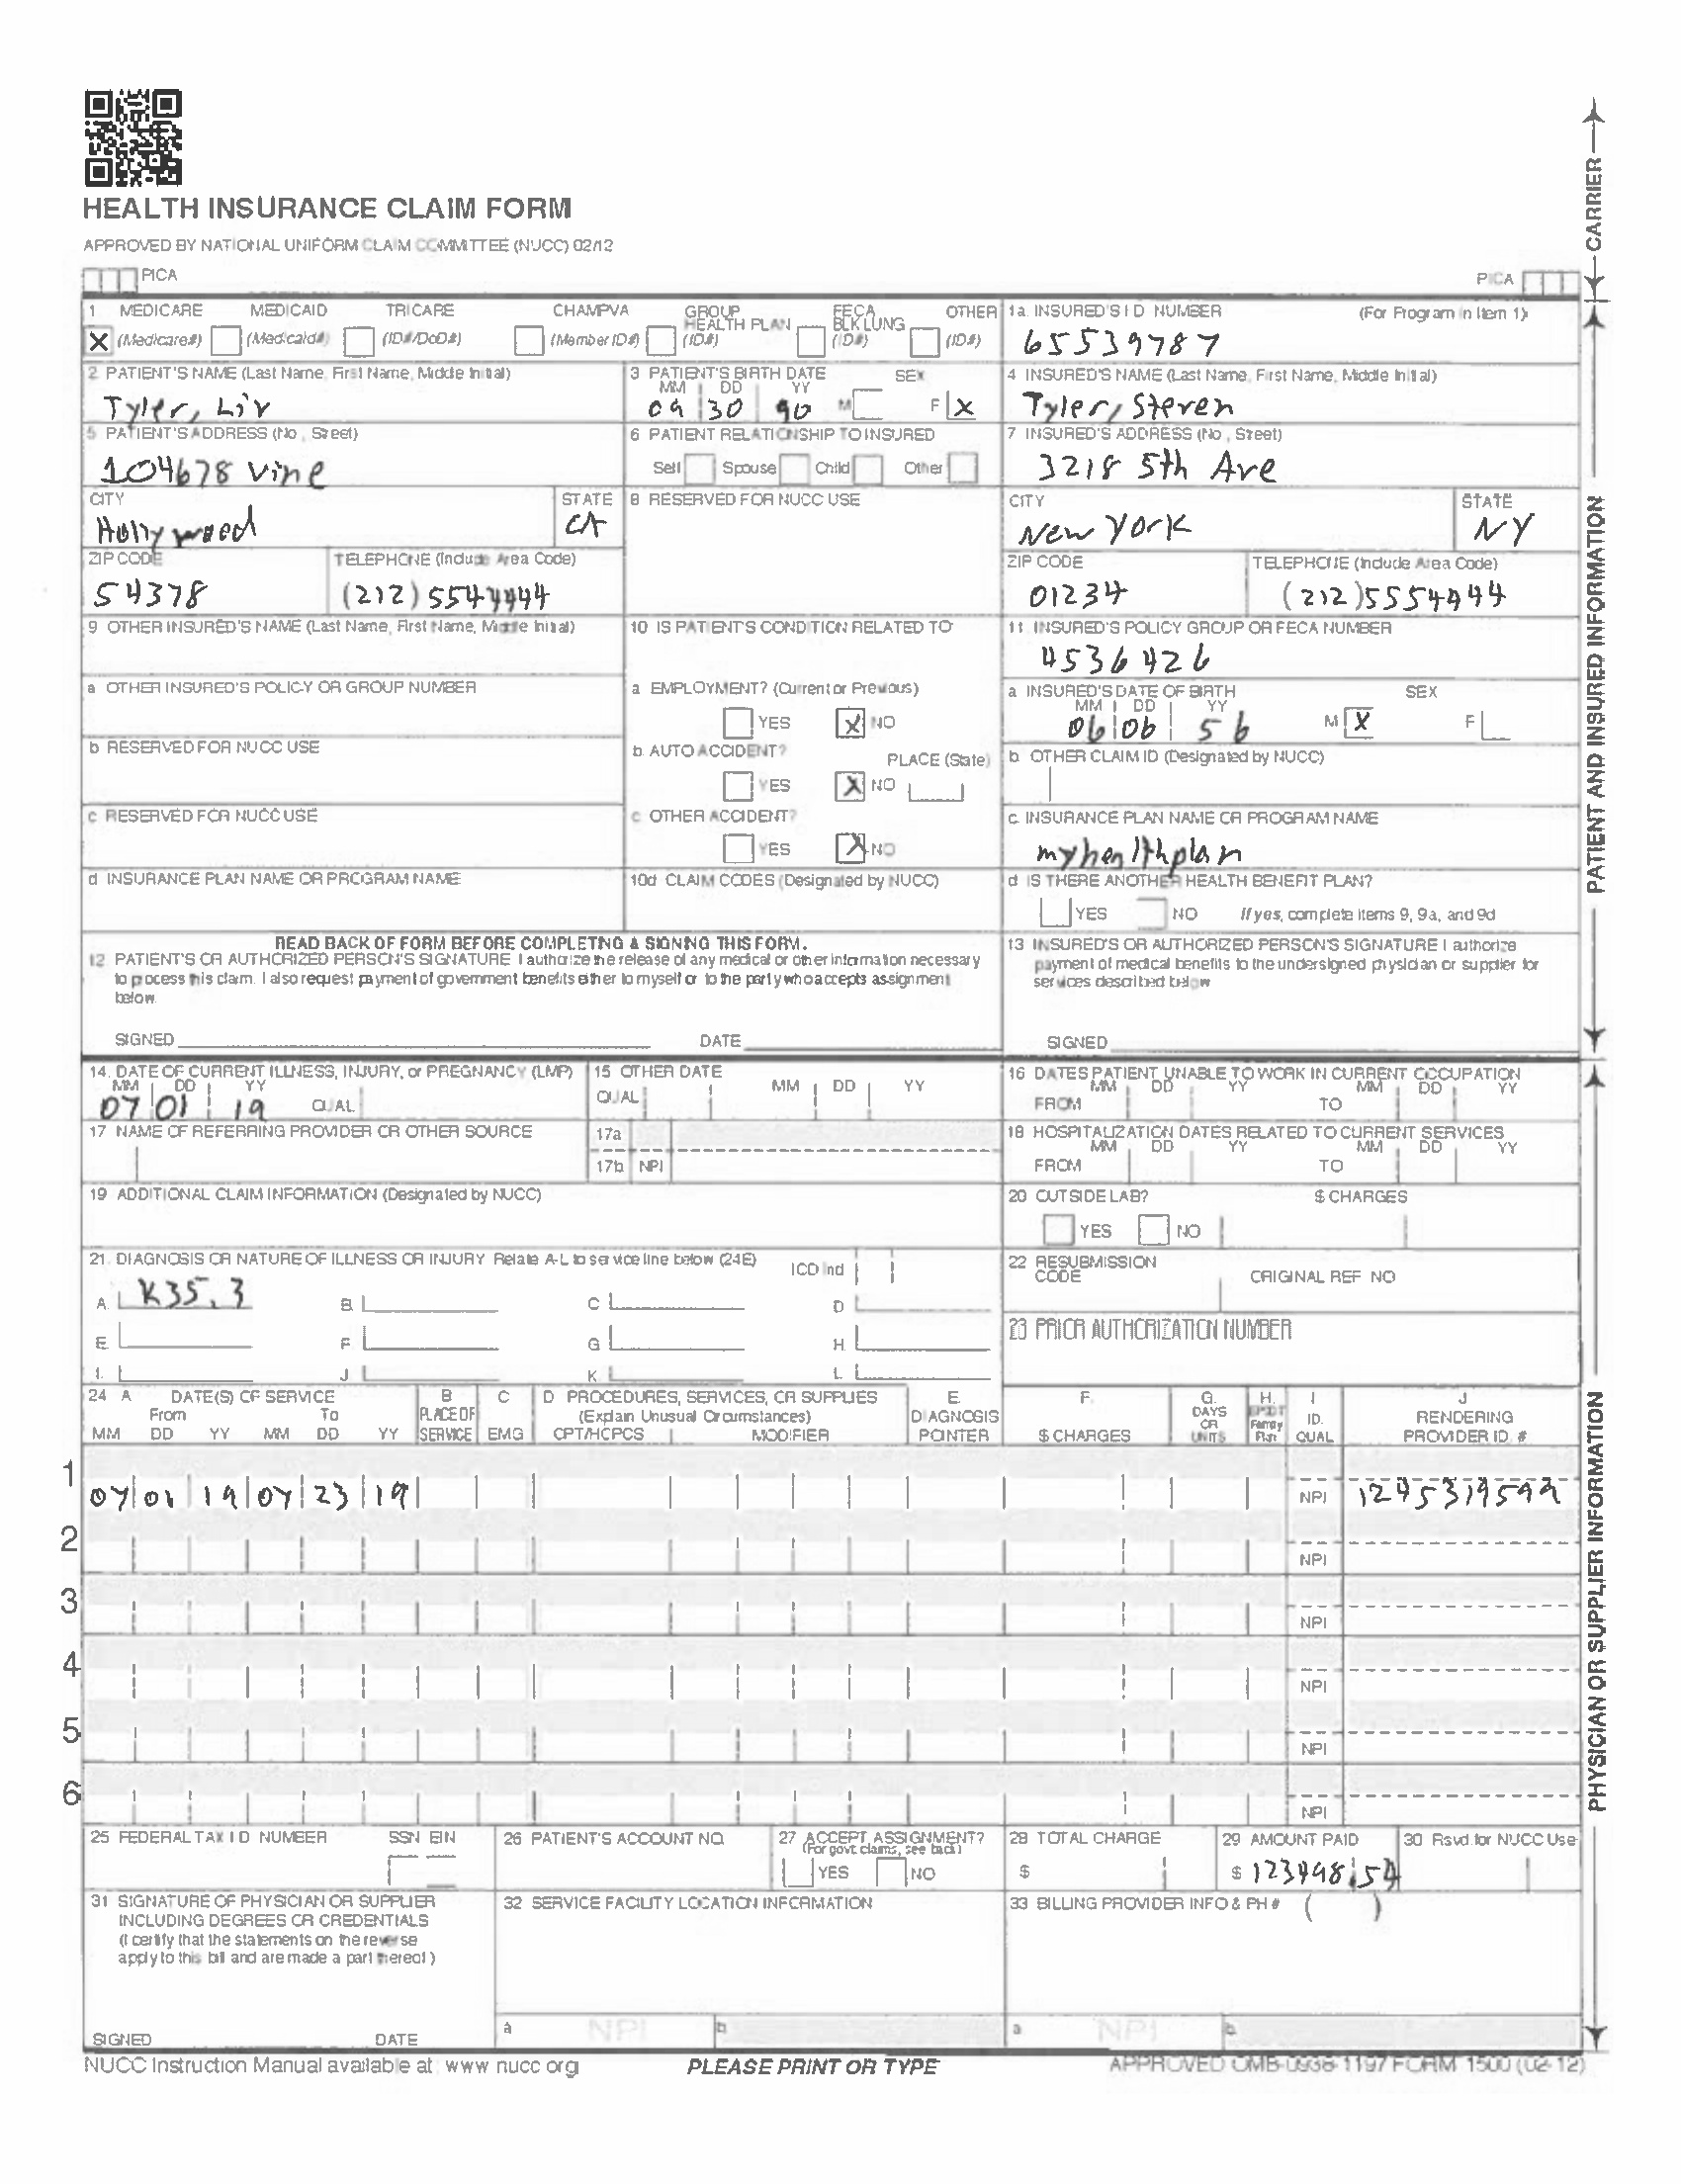 HEALTH INSURANCE CLAIM FORM
APPROVED BY NATIONAL UNIFORM CLAIM COMMITTEE (NUCC) 02/12
PICA PICA
CARRIER
1 MEDICARE MEDICAID TRICARE CHAMPVA GROUP HEALTH PLAN FECA BLK LUNG OTHER
X (Medicare#) (Medicaid#) (ID#/DoD#) (Member ID#) (ID#) (ID#) (ID#)
1a. INSURED'S I D NUMBER (For Program in Item 1)
65539787
2 PATIENT'S NAME (Last Name, First Name, Middle Initial)
Tyler, Liv
3 PATIENT'S BIRTH DATE SEX
MM DD YY
09 30 90 M F X
4 INSURED'S NAME (Last Name, First Name, Middle Initial)
Tyler, Steven
5 PATIENT'S ADDRESS (No , Street)
104678 Vine
6 PATIENT RELATIONSHIP TO INSURED
Self Spouse Child Other
7 INSURED'S ADDRESS (No , Street)
3218 5th Ave
CITY STATE
Hollywood CA
8 RESERVED FOR NUCC USE
CITY STATE
New York NY
ZIP CODE TELEPHONE (Include Area Code)
54378 (212) 5544444
ZIP CODE TELEPHONE (Include Area Code)
01234 (212) 5554444
9 OTHER INSURED'S NAME (Last Name, First Name, Middle Initial)
10 IS PATIENT'S CONDITION RELATED TO
11 INSURED'S POLICY GROUP OR FECA NUMBER
4536426
a OTHER INSURED'S POLICY OR GROUP NUMBER
a EMPLOYMENT? (Current or Previous)
YES X NO
a INSURED'S DATE OF BIRTH SEX
MM DD YY
06 06 56 M X F
b RESERVED FOR NUCC USE
b AUTO ACCIDENT? PLACE (State)
YES X NO
b OTHER CLAIM ID (Designated by NUCC)
c RESERVED FOR NUCC USE
c OTHER ACCIDENT?
YES X NO
c. INSURANCE PLAN NAME OR PROGRAM NAME
myhealthplan
d INSURANCE PLAN NAME OR PROGRAM NAME
10d CLAIM CODES (Designated by NUCC)
d IS THERE ANOTHER HEALTH BENEFIT PLAN?
YES NO If yes, complete items 9, 9a, and 9d
PATIENT AND INSURED INFORMATION
READ BACK OF FORM BEFORE COMPLETING & SIGNING THIS FORM.
12 PATIENT'S OR AUTHORIZED PERSON'S SIGNATURE I authorize the release of any medical or other information necessary
to process this claim. I also request payment of government benefits either to myself or to the party who accepts assignment
below
SIGNED DATE
13 INSURED'S OR AUTHORIZED PERSON'S SIGNATURE I authorize
payment of medical benefits to the undersigned physician or supplier for
services described below
SIGNED
14. DATE OF CURRENT ILLNESS, INJURY, or PREGNANCY (LMP)
MM DD YY
07 01 19 QUAL
15 OTHER DATE
QUAL MM DD YY
16 DATES PATIENT UNABLE TO WORK IN CURRENT OCCUPATION
MM DD YY MM DD YY
FROM TO
17 NAME OF REFERRING PROVIDER OR OTHER SOURCE
17a
17b NPI
18 HOSPITALIZATION DATES RELATED TO CURRENT SERVICES
MM DD YY MM DD YY
FROM TO
19 ADDITIONAL CLAIM INFORMATION (Designated by NUCC)
20 OUTSIDE LAB? $ CHARGES
YES NO
21. DIAGNOSIS OR NATURE OF ILLNESS OR INJURY Relate A-L to service line below (24E) ICD Ind
A. K35.3 B. C D
E. F. G H.
I. J K L
22 RESUBMISSION CODE ORIGINAL REF NO
23 PRIOR AUTHORIZATION NUMBER
24 A DATE(S) OF SERVICE B C D PROCEDURES, SERVICES, OR SUPPLIES E. F. G. H. I J
From To PLACE OF (Explain Unusual Circumstances) DIAGNOSIS DAYS OR EPSDT Family ID. RENDERING
MM DD YY MM DD YY SERVICE EMG CPT/HCPCS MODIFIER POINTER $ CHARGES UNITS Plan QUAL PROVIDER ID. #
1
07 01 19 07 23 19 NPI
2
NPI
3
NPI
4
NPI
5
NPI
6
NPI
25 FEDERAL TAX I D NUMBER SSN EIN
26 PATIENT'S ACCOUNT NO.
27 ACCEPT ASSIGNMENT?
(For govt. claims, see back)
YES NO
28 TOTAL CHARGE
$
29 AMOUNT PAID
$ 123498 54
30 Rsvd for NUCC Use
31 SIGNATURE OF PHYSICIAN OR SUPPLIER
INCLUDING DEGREES OR CREDENTIALS
(I certify that the statements on the reverse
apply to this bill and are made a part thereof )
SIGNED DATE
32 SERVICE FACILITY LOCATION INFORMATION
a NPI b
33 BILLING PROVIDER INFO & PH # ( )
a NPI b
PHYSICIAN OR SUPPLIER INFORMATION
NUCC Instruction Manual available at: www nucc org
PLEASE PRINT OR TYPE
APPROVED OMB-0938-1197 FORM 1500 (02-12)